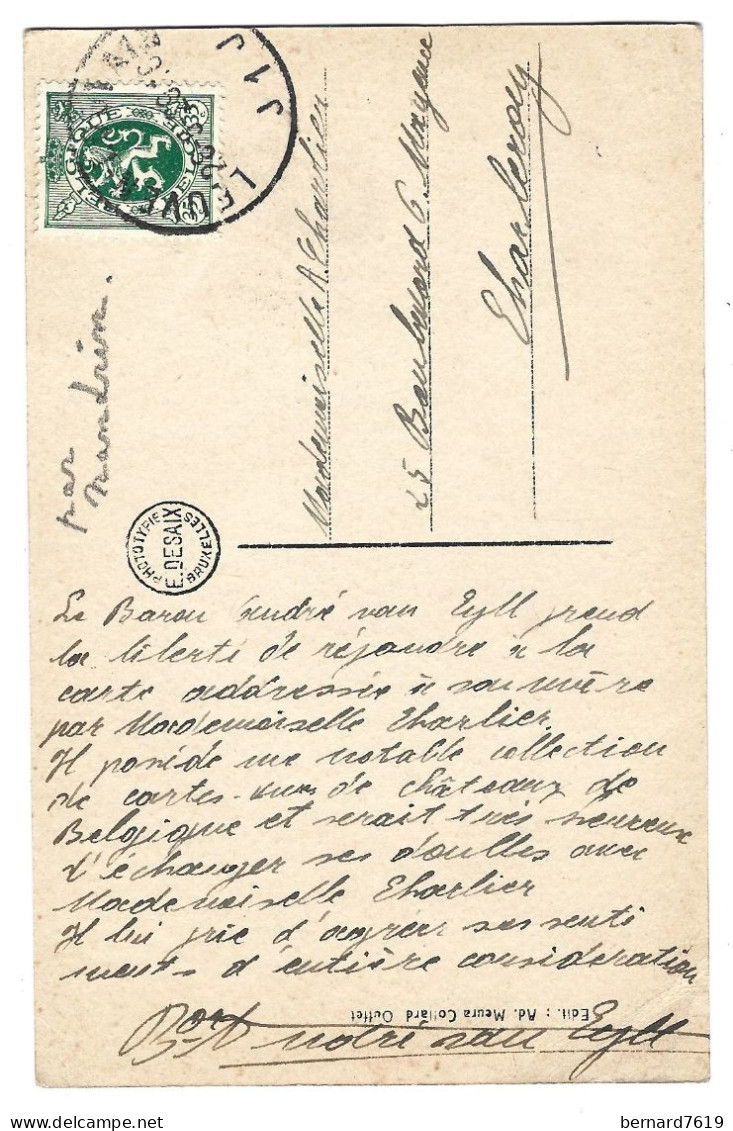 BELGIQUE
BELGIË
35
LEUVEN
J1J
Mademoiselle A. Charlier
25 Boulevard G. Mayence
Charleroy
par
Nandrin.
PHOTOTYPIE
E. DESAIX
BRUXELLES
Le Baron André van Eyll prend
la liberté de répondre à la
carte addressée à sa mère
par Mademoiselle Charlier
Il posède une notable collection
de cartes-vues de châteaux de
Belgique et serait très heureux
d'échanger ses doulles avec
Mademoiselle Charlier
Il lui prie d'agréer ses senti
ments d'entière consideration
Edit. : Ad. Meura Collard Ouffet
Bon André van Eyll
bernard7619